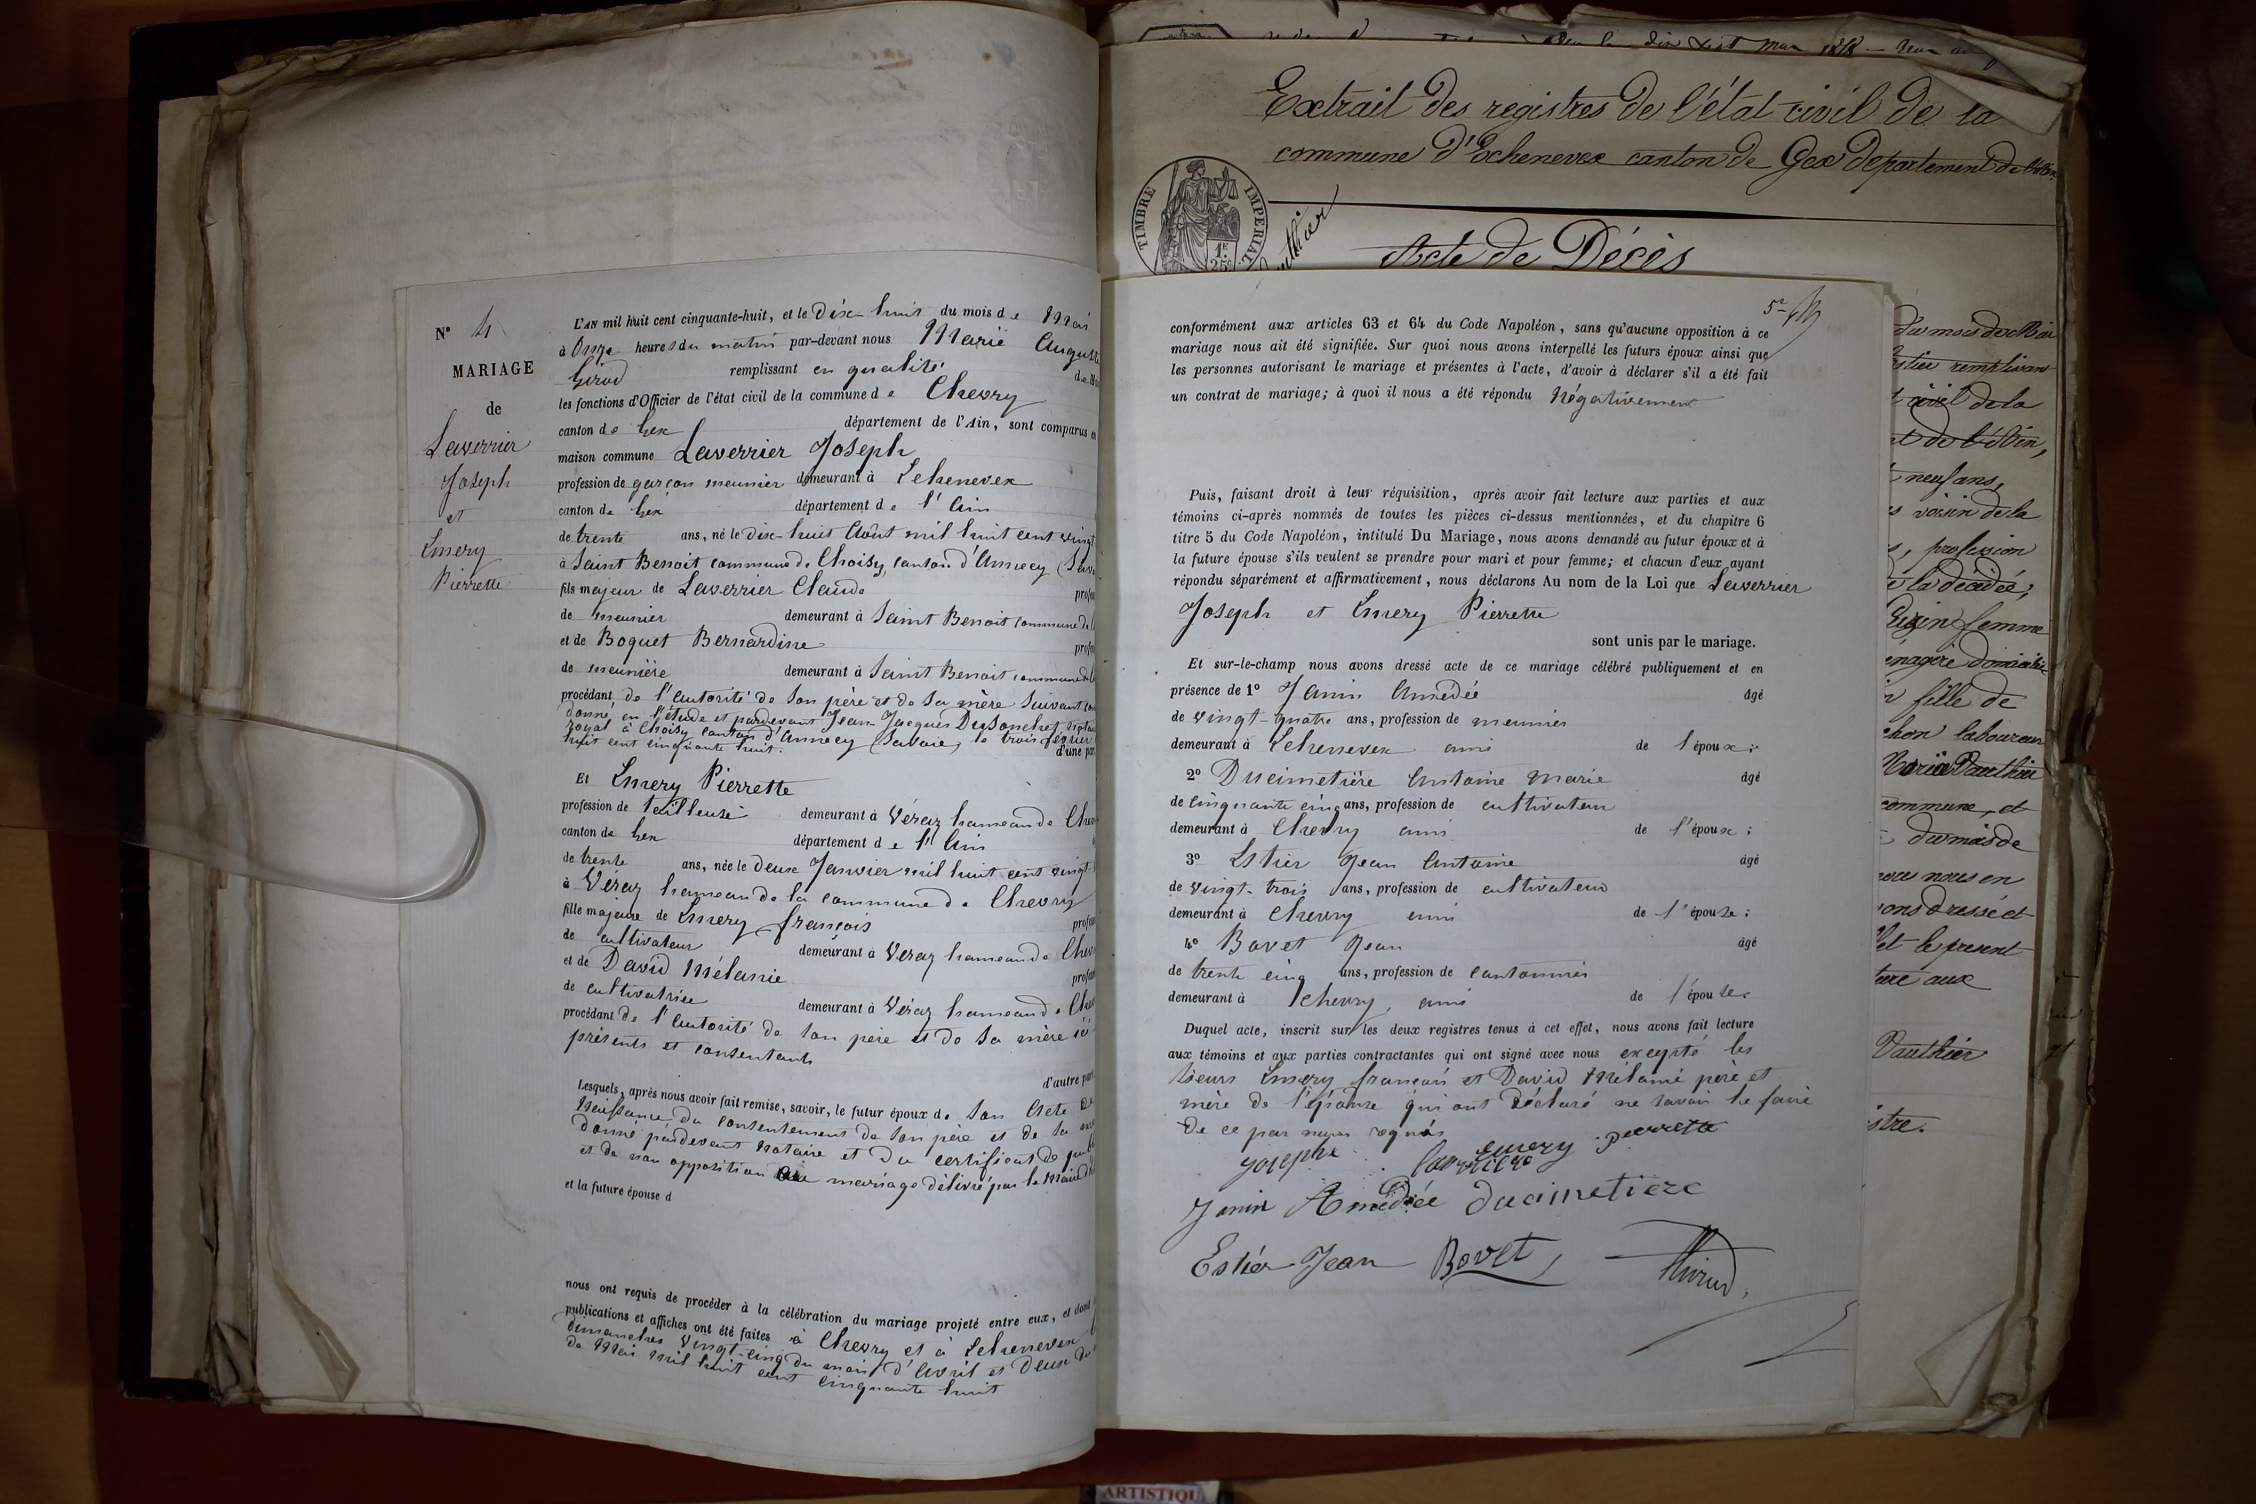 N° 4
MARIAGE
de
Laverrier
Joseph
et
Emery
Pierrette
L'AN mil huit cent cinquante-huit, et le dix-huit du mois de Mai
à Onze heures du matin par-devant nous Marie Auguste
Girod remplissant en qualité de
les fonctions d'Officier de l'état civil de la commune de Chevry
canton de Gex département de l'Ain, sont comparus en
maison commune Laverrier Joseph
profession de garçon meunier demeurant à Echenevex
canton de Gex département de l'Ain
de trente ans, né le dix-huit Août mil huit cent vingt
à Saint Benoit commune de Choisy, canton d'Annecy
fils majeur de Laverrier Claude
de meunier demeurant à Saint Benoit commune de
et de Boquet Bernardine
de meunière demeurant à Saint Benoit commune de
procédant de l'autorité de son père et de sa mère suivant
donné en l'étude et pardevant Jean Jacques
royal à Choisy canton d'Annecy (Savoie) le trois
huit cent cinquante huit. d'une part
Et Emery Pierrette
profession de tailleuse demeurant à Véraz hameau de
canton de Gex département de l'Ain
de trente ans, née le deux Janvier mil huit cent vingt
à Véraz hameau de la commune de Chevry
fille majeure de Emery françois
de cultivateur demeurant à Veraz hameau de
et de David Mélanie
de cultivatrice demeurant à Véraz hameau de
procédant de l'autorité de son père et de sa mère ici
présents et consentants
d'autre part
Lesquels, après nous avoir fait remise, savoir, le futur époux de son acte de
Naissance, du consentement de son père et de sa
donné pardevant notaire et du certificat de
et de non opposition au mariage délivré par le Maire
et la future épouse d
nous ont requis de procéder à la célébration du mariage projeté entre eux, et dont
publications et affiches ont été faites à Chevry et à Echenevex
dimanches vingt-cinq du mois d'avril et deux du
de Mai mil huit cent cinquante huit
Extrait des registres de l'état civil de la
commune d'Echenevex canton de Gex departement de l'Ain
TIMBRE IMPERIAL
1F
25c
Acte de Décès
conformément aux articles 63 et 64 du Code Napoléon, sans qu'aucune opposition à ce
mariage nous ait été signifiée. Sur quoi nous avons interpellé les futurs époux ainsi que
les personnes autorisant le mariage et présentes à l'acte, d'avoir à déclarer s'il a été fait
un contrat de mariage; à quoi il nous a été répondu Négativement
Puis, faisant droit à leur réquisition, après avoir fait lecture aux parties et aux
témoins ci-après nommés de toutes les pièces ci-dessus mentionnées, et du chapitre 6
titre 5 du Code Napoléon, intitulé Du Mariage, nous avons demandé au futur époux et à
la future épouse s'ils veulent se prendre pour mari et pour femme; et chacun d'eux ayant
répondu séparément et affirmativement, nous déclarons Au nom de la Loi que Laverrier
Joseph et Emery Pierrette
sont unis par le mariage.
Et sur-le-champ nous avons dressé acte de ce mariage célébré publiquement et en
présence de 1° Janin Amédée âgé
de vingt-quatre ans, profession de meunier
demeurant à Echenevex ami de l'époux;
2° Ducimetière Antoine Marie âgé
de cinquante cinq ans, profession de cultivateur
demeurant à Chevry ami de l'époux;
3° Estier Jean Antoine âgé
de vingt-trois ans, profession de cultivateur
demeurant à Chevry ami de l'épouse;
4° Bovet Jean âgé
de trente cinq ans, profession de cantonnier
demeurant à Chevry, ami de l'épouse.
Duquel acte, inscrit sur les deux registres tenus à cet effet, nous avons fait lecture
aux témoins et aux parties contractantes qui ont signé avec nous excepté les
sieurs Emery françois et David Mélanie père et
mère de l'épouse qui ont déclaré ne savoir le faire
de ce par nous requis
josephe laverriere emery pierrette
Janin Amédée ducimetiere
Estier Jean Bovet Girod
du mois de Mai
remplissant
civil de la
et de l'Ain,
neuf ans,
voisin de la
profession
la décédée,
femme
fille de
laboureur
Vauthier
commune, et
du mois de
nous en
dressé et
et le present
aux
Vauthier
ARTISTIQU